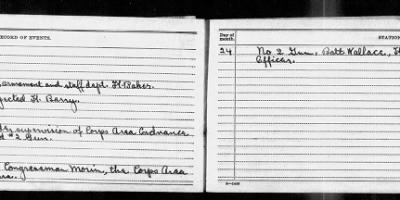 RECORD OF EVENTS.
armament and staff dept. Ft Baker.
Ft. Barry.
supervision of Corps Area Ordnance
#2 Gun.
Congressman Morin, the Corps Area
Day of
month.
STATION
24
No 2 Gun, Batt Wallace,
Officer.